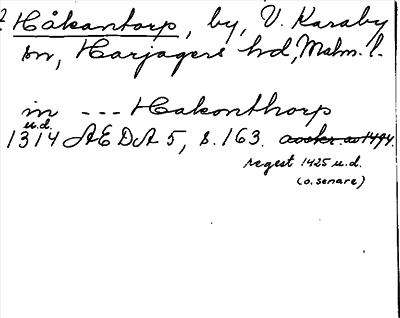 ? Håkantorp, by, V. Karaby
sn, Harjagers hd, Malm. l.
in --- Hakonthorp
u.d.
1314 AEDA 5, s. 163. avskr. av 1494.
regest 1425 u.d.
(o. senare)